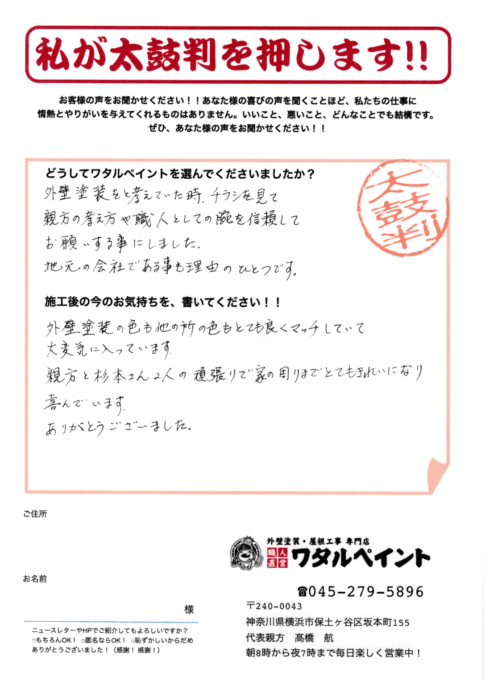 私が太鼓判を押します!!
お客様の声をお聞かせください！！あなた様の喜びの声を聞くことほど、私たちの仕事に
情熱とやりがいを与えてくれるものはありません。いいこと、悪いこと、どんなことでも結構です。
ぜひ、あなた様の声をお聞かせください！！
どうしてワタルペイントを選んでくださいましたか？
太鼓判
外壁塗装をと考えていた時、チラシを見て
親方の考え方や職人としての腕を信頼して
お願いする事にしました。
地元の会社である事も理由のひとつです。
施工後の今のお気持ちを、書いてください！！
外壁塗装の色も他の所の色もとても良くマッチしていて
大変気に入っています。
親方と杉本さん2人の頑張りで家の周りまでとてもきれいになり
喜んでいます。
ありがとうございました。
ご住所
お名前
様
ニュースレターやHPでご紹介してもよろしいですか？
□もちろんOK！ □匿名ならOK！ □恥ずかしいからだめ
ありがとうございました！（感謝！感謝！）
外壁塗装・屋根工事 専門店
職人直営 ワタルペイント
☎045-279-5896
〒240-0043
神奈川県横浜市保土ヶ谷区坂本町155
代表親方 髙橋 航
朝8時から夜7時まで毎日楽しく営業中！